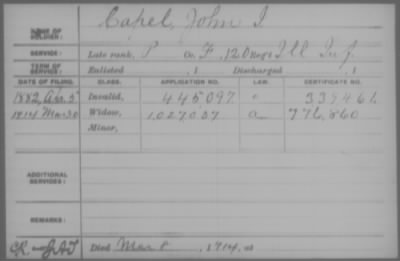 NAME OF SOLDIER: Capel, John I
SERVICE: Late rank, P Co. F, 120 Reg't Ill Inf.
TERM OF SERVICE: Enlisted , 1 Discharged , 1
DATE OF FILING. CLASS. APPLICATION NO. LAW. CERTIFICATE NO.
1882, Apr. 5 Invalid, 445097 339461
1914 Mar 30 Widow, 1,027,037 a 776,860
Minor,
ADDITIONAL SERVICES:
REMARKS:
Died Mar 8, 1914, at